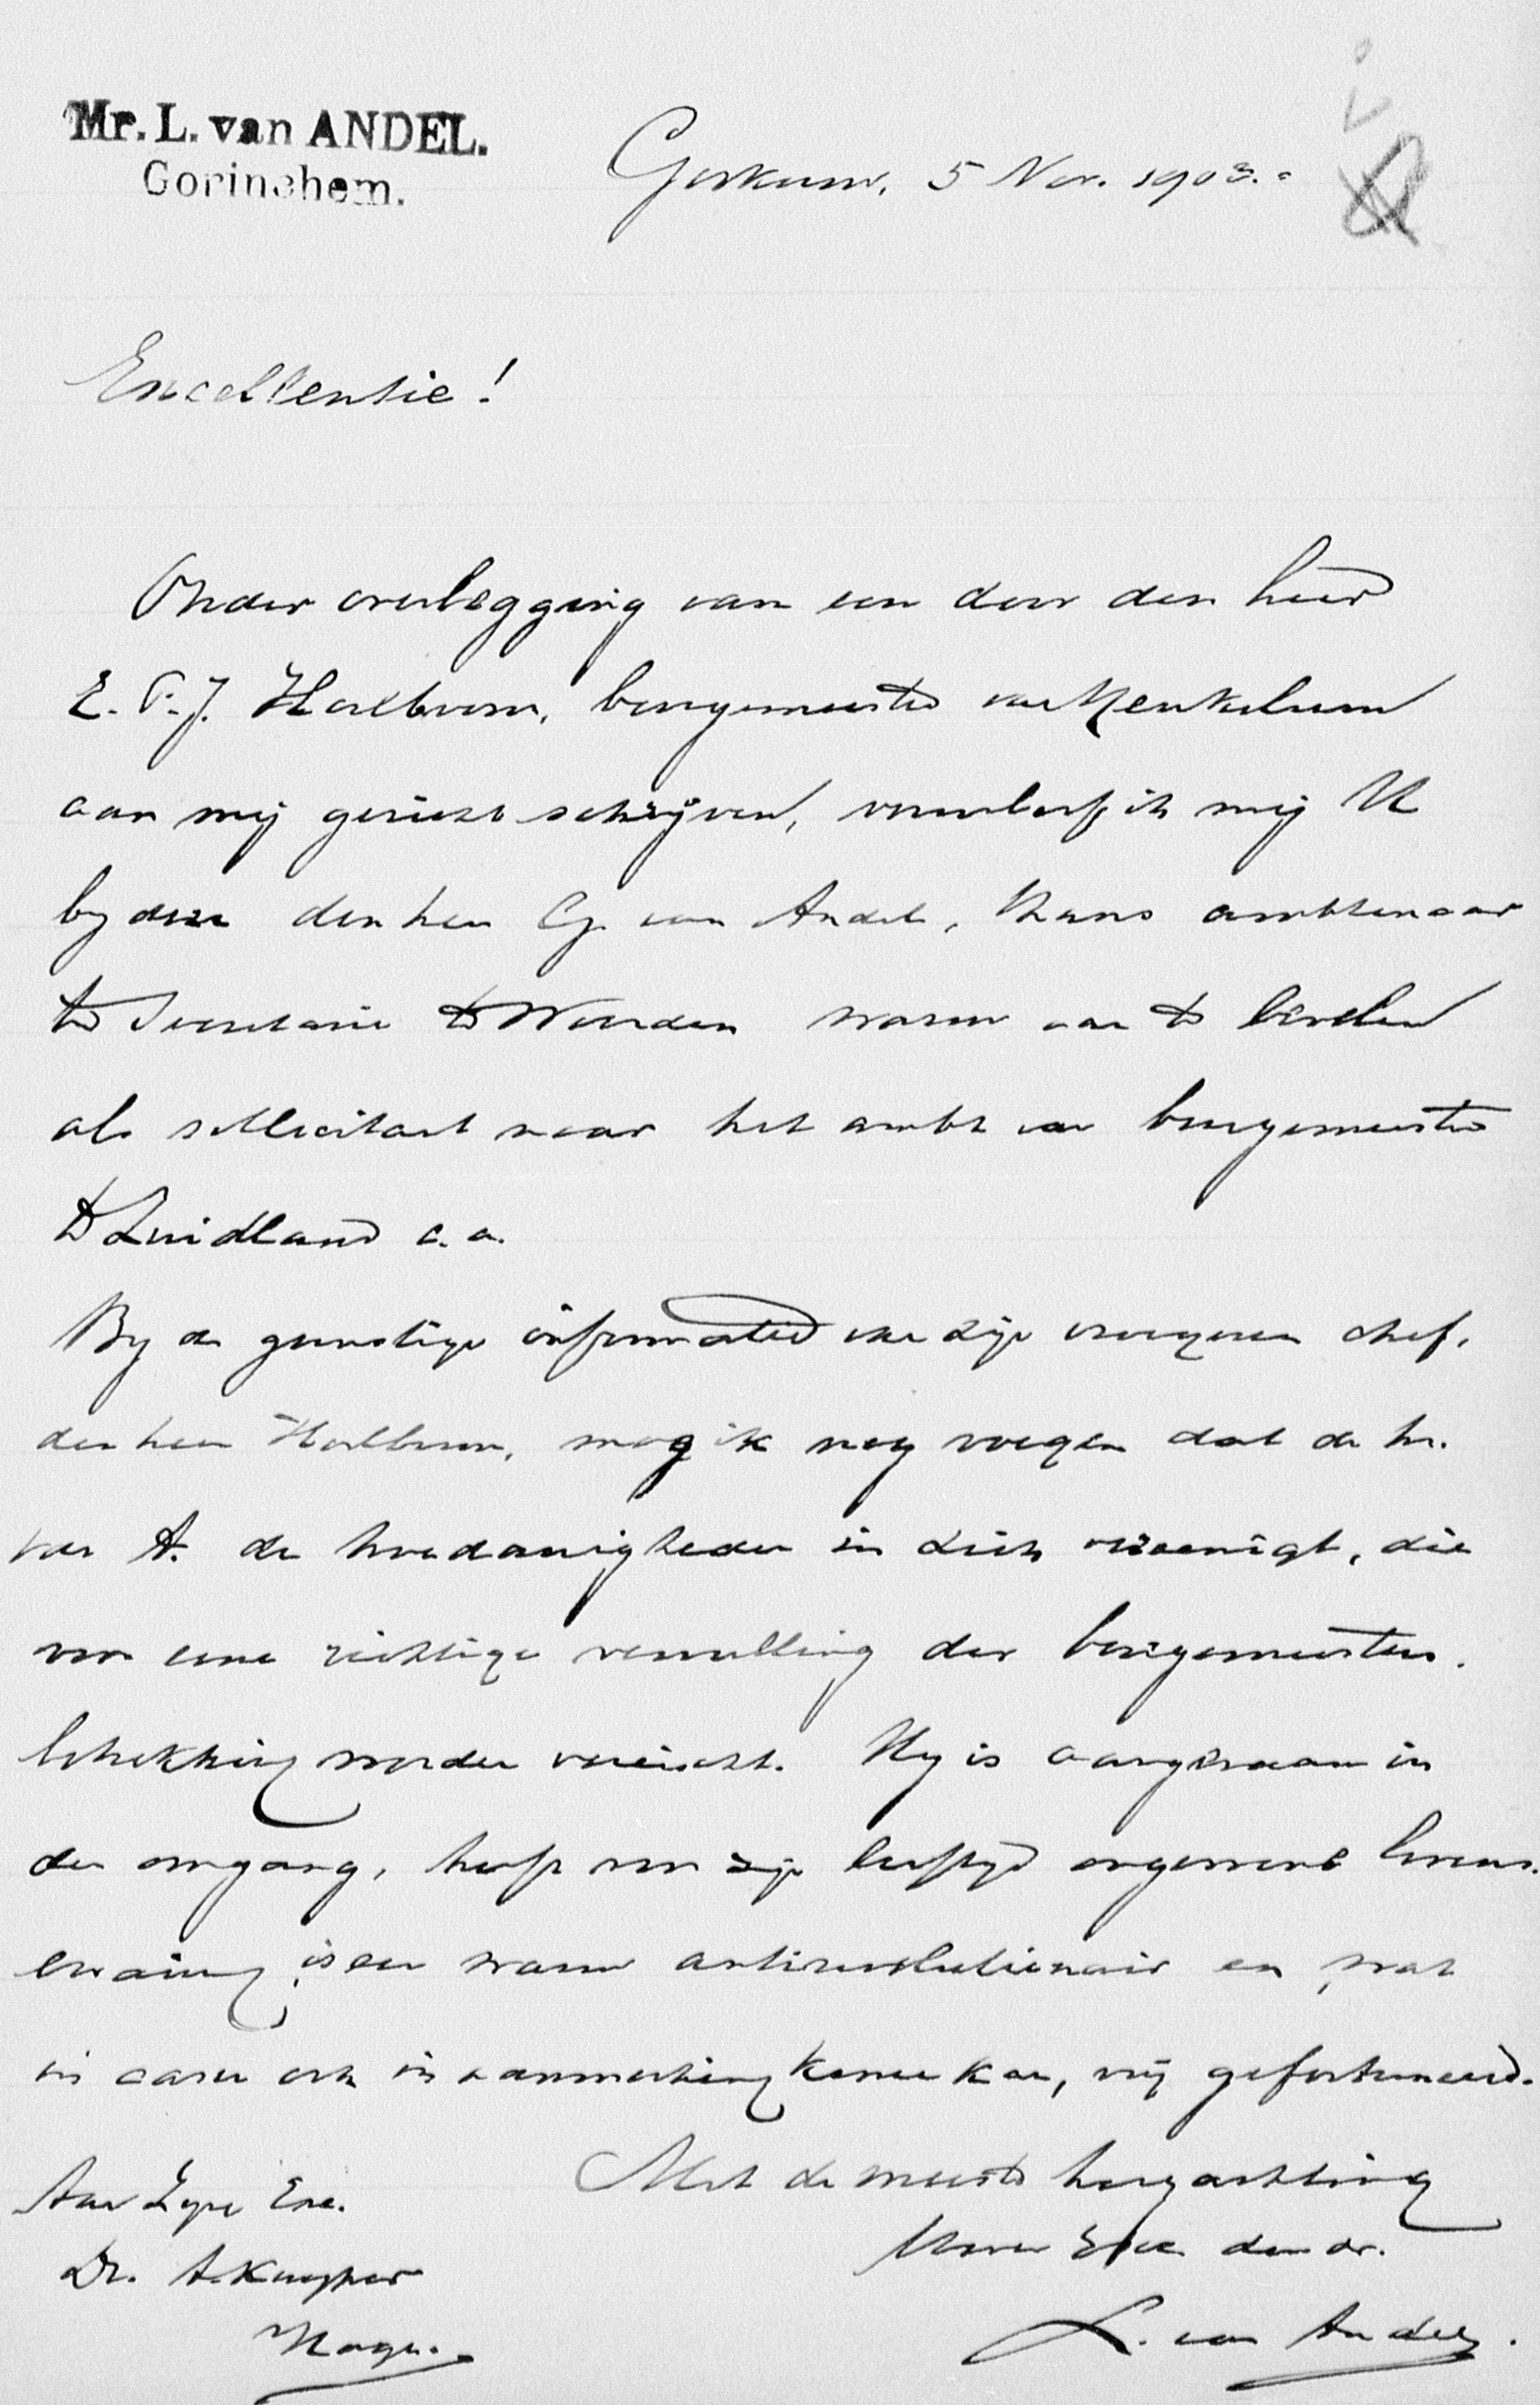 Mr. L. van ANDEL.
Gorinchem.
Gorkum, 5 Nov. 1903.
Excellentie!
Onder overlegging van een door den heer
E. P. J. Holboom, burgemeester van Renkum
aan mij gericht schrijven, veroorloof ik mij U
by deze den heer G. van Andel, thans ambtenaar
ter Secretarie te Woerden warm aan te bevelen
als sollicitant naar het ambt van burgemeester
te Zuidland c. a.
By de gunstige informatie van zijn vroegeren chef,
den heer Holboom, mag ik nog voegen dat de hr.
van A. de hoedanigheden in zich vereenigt, die
voor eene richtige vervulling der burgemeesters
betrekking worden vereischt. Hy is aangenaam in
den omgang, heeft voor zijn leeftyd ongewone levens
ervaring, is een warm antirevolutionair en, wat
in casu ook in aanmerking komen kan, vrij gefortuneerd.
Met de meeste hoogachting
Uwer Exc. dw. dr.
L. van Andel.
Aan Zyne Exc.
Dr. A. Kuyper
Hage.